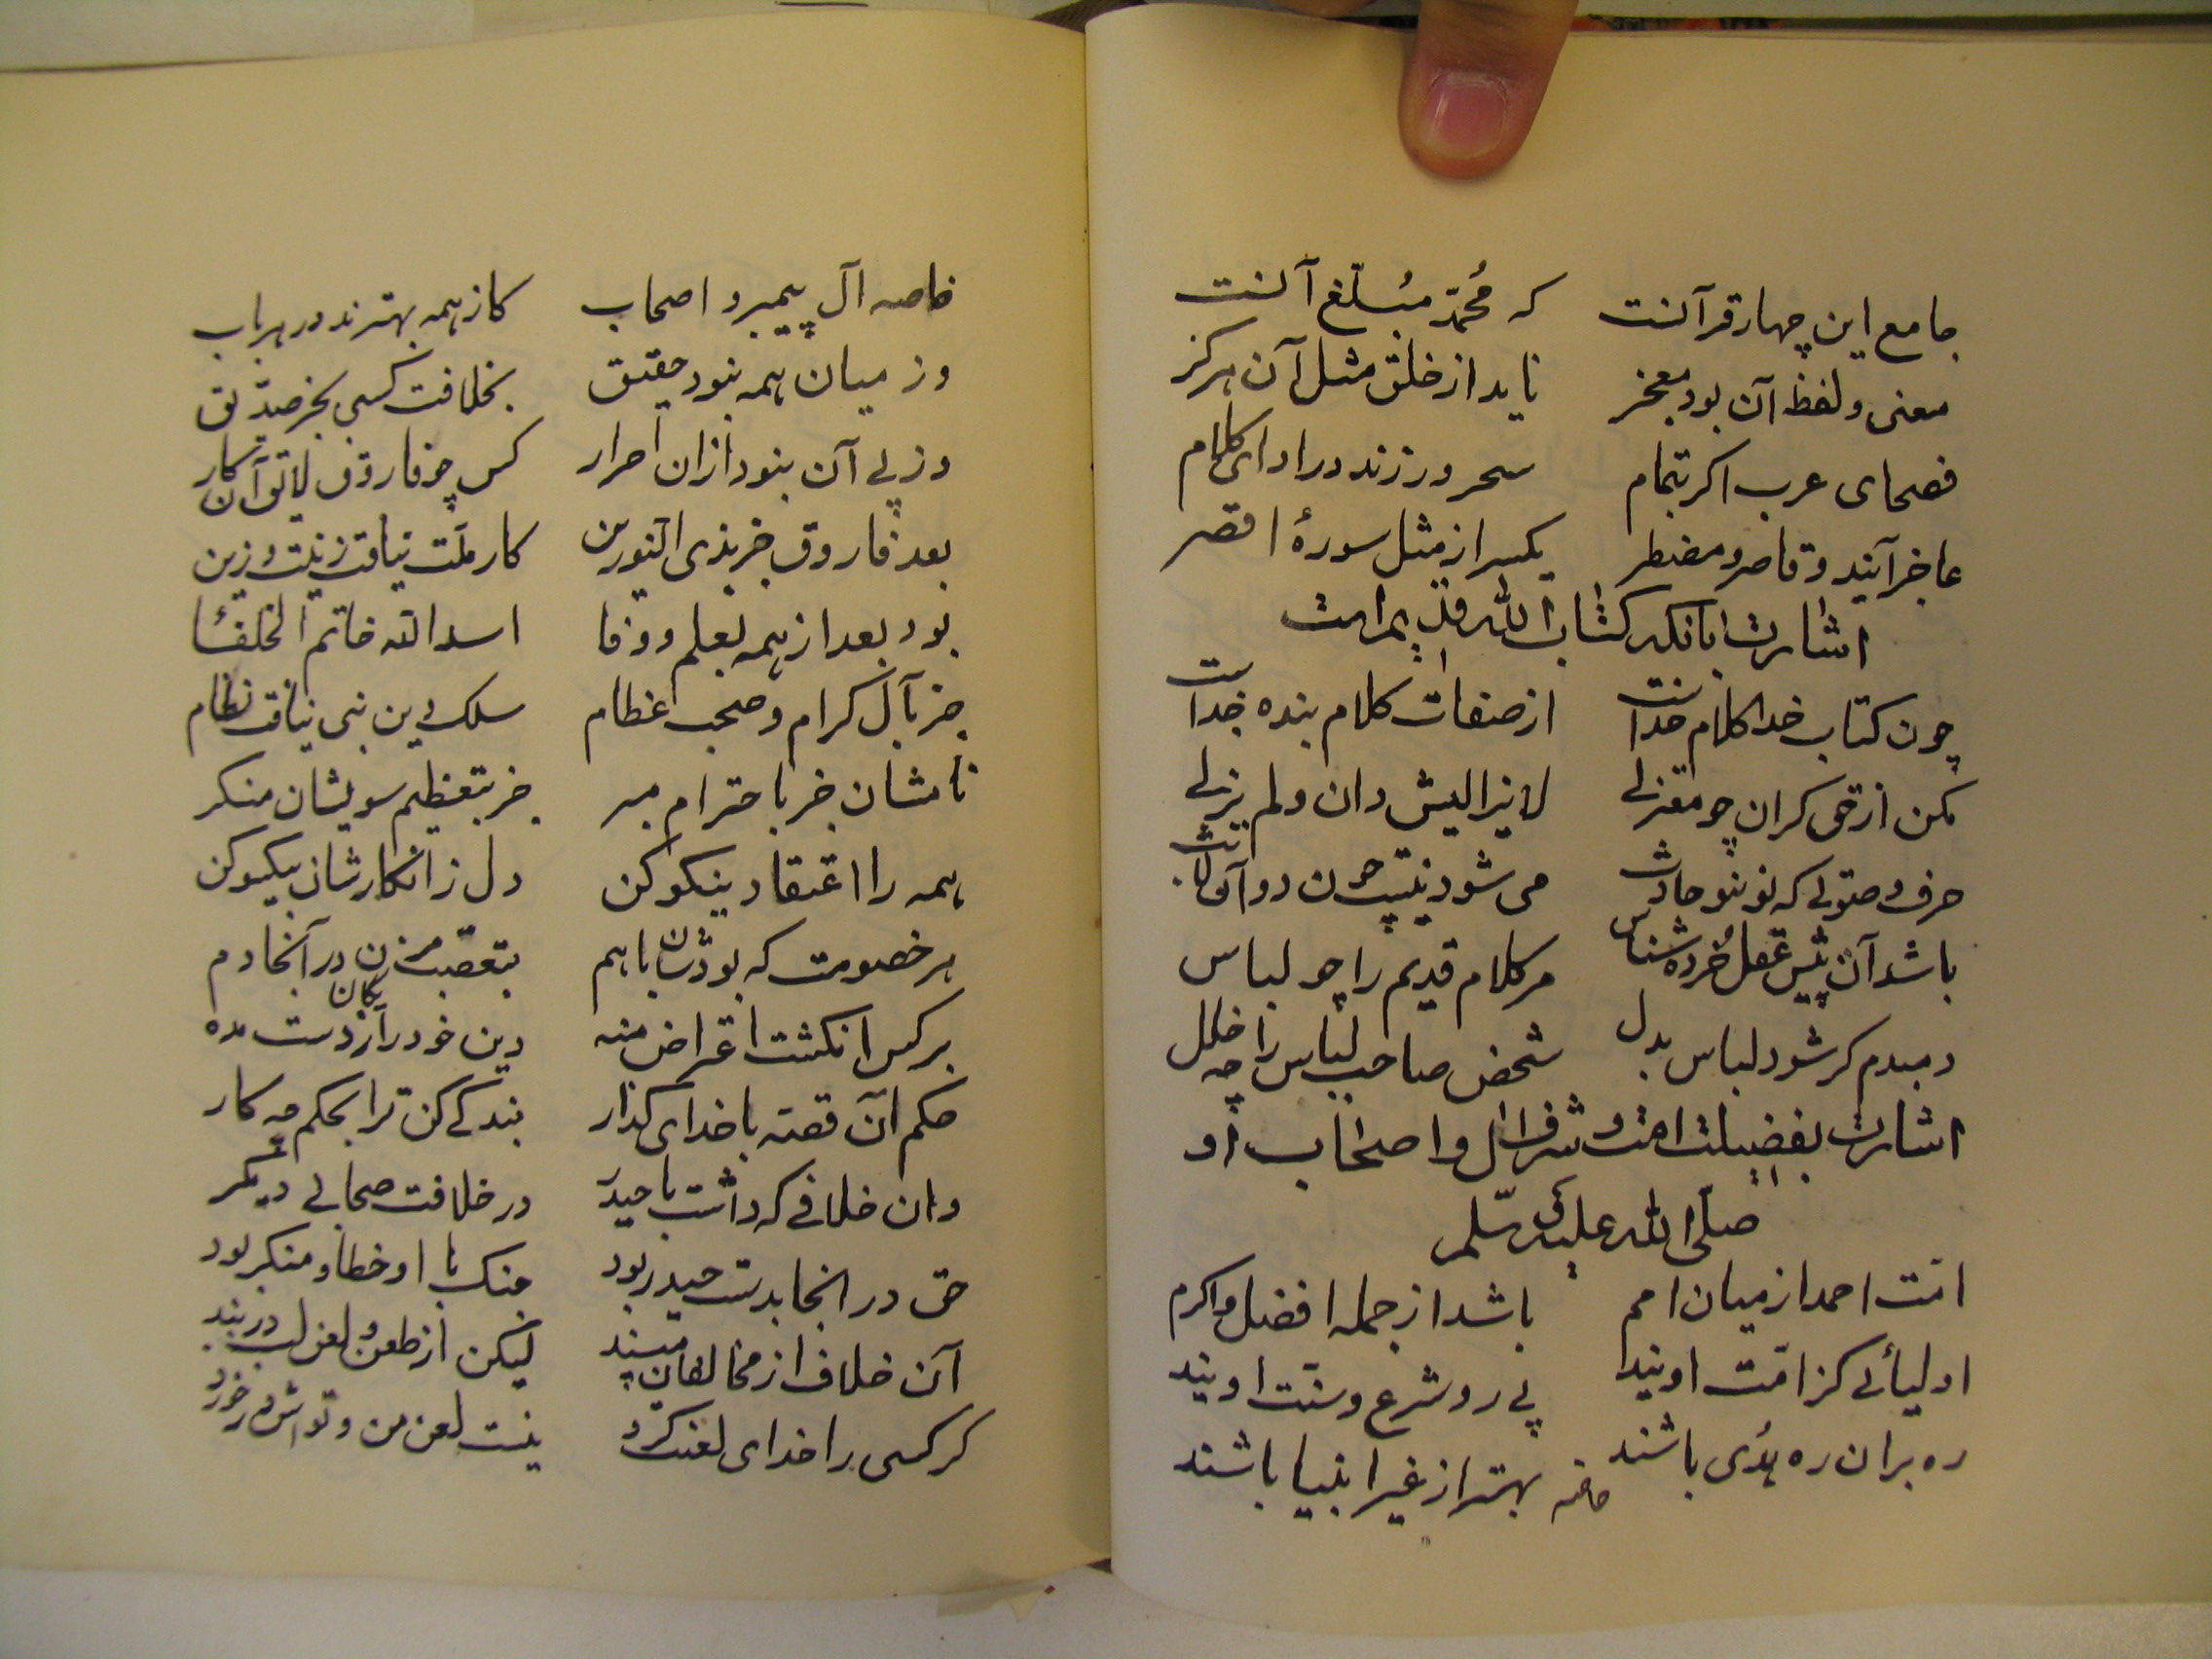 جامع این چهار قرآنست که مُحمّد مبُلّغ آنست
معنی و لفظ آن بود معجز ناید از خلق مثل آن هرکز
فصحای عرب اکر بتمام سحر ورزند در ادای کلام
عاجز آیند و قاصر و مضطر یکسر از مثل سورهٔ اقصر
اشارت بانکه کتاب الله قدیم است
چون کتاب خدا کلام خداست از صفات کلام بنده جداست
مکن از قی کران چو معتزلے لایزالیش دان و لم یزلے
حرف و صوتے که نو بنو حادث می شود نیست چون دو آن لابث
باشد آن پیش عقل خُرده شناس مر کلام قدیم را چو لباس
دمبدم کر شود لباس بدل شخص صاحب لباس را چه خلل
اشارت بفضیلت امت و شرف ال و اصحاب او
صلّی الله علیه و سلّم
امّت احمد از میان امم باشد از جمله افضل و اکرم
اولیائے کز امّت اویند پے رو شرع و سنّت اویند
ره بران ره هُدی باشند بهتر از غیر انبیا باشند
خاصه
خاصه آل پیمبر و اصحاب کاز همه بهترند در هر باب
وز میان همه نبود حقیق بخلافت کسی بجز صدّیق
وز پے آن بنود ازان احرار کس چو فاروق لایق آن کار
بعد فاروق جز بذی النورین کار ملّت نیافت زینت و زین
بود بعد از همه بعلم و وفا اسد الله خاتم الخلفا
جز بآل کرام و صحب عظام سلک دین نبی نیافت نظام
نامشان جز باحترام مبر جز بتعظیم سویشان منکر
همه را اعتقاد نیکو کن دل ز انکارشان بیکسو کن
هر خصومت که بودشان باهم بتعصّب مزن در آنجا دم
بر کس انکشت اعتراض منه دین خود رایکان ز دست مده
حکم آن قصّه با خدای کذار بندکے کن ترا بحکم چه کار
وان خلافے که داشت با حیدر در خلافت صحابے دیکر
حق در انجا بدست حیدر بود جنک با او خطا و منکر بود
آن خلاف از مخالفان مپسند لیکن از طعن و لعن لب در بند
کر کسی را خدای لعنت کرد نیست لعن من و تواش در خورد